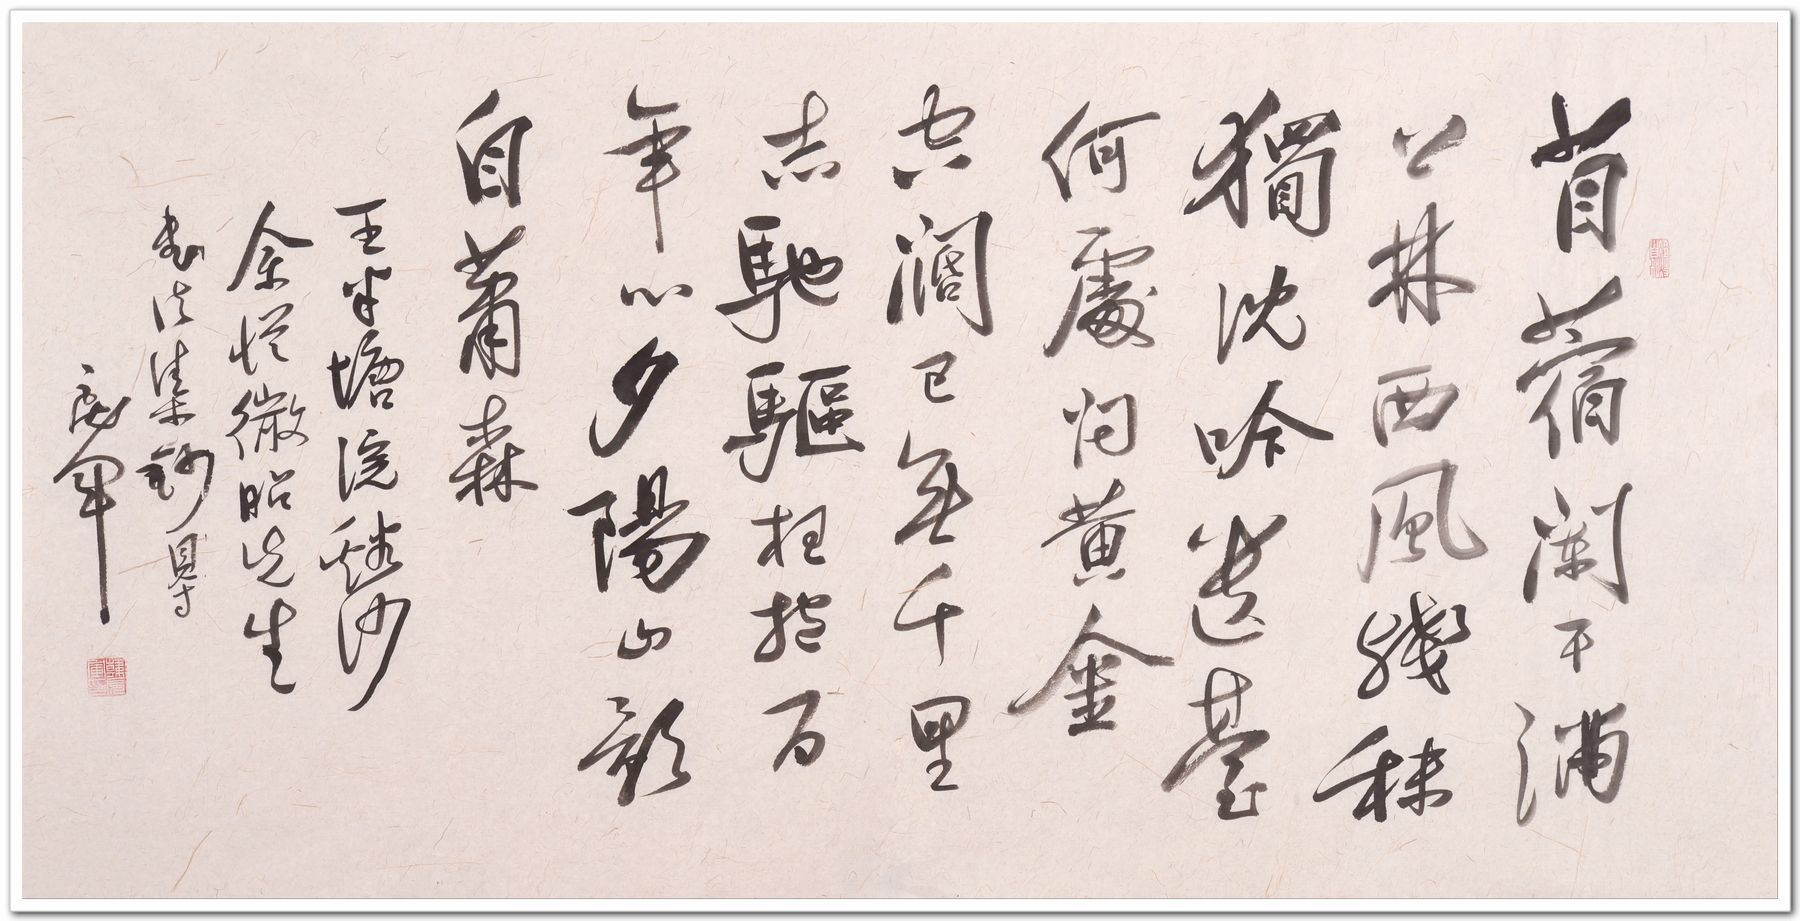 苜蓿闌干滿
上林西風殘秣
獨沈吟遺臺
何處黃金
空闊已無千里
志馳驅枉抱百
年心夕陽山影
自蕭森
王半塘浣谿沙
余從徽昭先生
書法集鈔得
軍